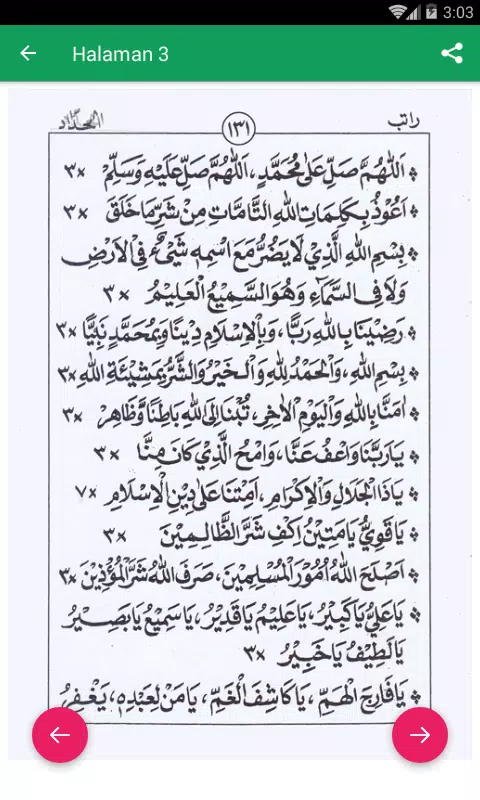 3:03
Halaman 3
راتب ١٣١ الحدّاد
اَللّٰهُمَّ صَلِّ عَلٰى مُحَمَّدٍ، اَللّٰهُمَّ صَلِّ عَلَيْهِ وَسَلِّمْ ٣×
اَعُوْذُ بِكَلِمَاتِ اللّٰهِ التَّامَّاتِ مِنْ شَرِّ مَا خَلَقَ ٣×
بِسْمِ اللّٰهِ الَّذِيْ لَا يَضُرُّ مَعَ اسْمِهٖ شَيْءٌ فِى الْاَرْضِ
وَلَا فِى السَّمَاءِ وَهُوَ السَّمِيْعُ الْعَلِيْمُ ٣×
رَضِيْنَا بِاللّٰهِ رَبًّا، وَبِالْاِسْلَامِ دِيْنًا وَبِمُحَمَّدٍ نَبِيًّا ٣×
بِسْمِ اللّٰهِ، وَالْحَمْدُ لِلّٰهِ وَالْخَيْرُ وَالشَّرُّ بِمَشِيْئَةِ اللّٰهِ ٣×
اٰمَنَّا بِاللّٰهِ وَالْيَوْمِ الْاٰخِرِ، تُبْنَا اِلَى اللّٰهِ بَاطِنًا وَّظَاهِرْ ٣×
يَارَبَّنَا وَاعْفُ عَنَّا، وَامْحُ الَّذِيْ كَانَ مِنَّا ٣×
يَاذَا الْجَلَالِ وَالْاِكْرَامِ، اَمِتْنَا عَلٰى دِيْنِ الْاِسْلَامِ ٧×
يَا قَوِيُّ يَامَتِيْنُ اكْفِ شَرَّ الظَّالِمِيْنَ ٣×
اَصْلَحَ اللّٰهُ اُمُوْرَ الْمُسْلِمِيْنَ، صَرَفَ اللّٰهُ شَرَّ الْمُؤْذِيْنَ ٣×
يَاعَلِيُّ يَاكَبِيْرُ، يَاعَلِيْمُ يَاقَدِيْرُ، يَاسَمِيْعُ يَابَصِيْرُ
يَالَطِيْفُ يَاخَبِيْرُ ٣×
يَافَارِجَ الْهَمِّ، يَاكَاشِفَ الْغَمِّ، يَامَنْ لِعَبْدِهٖ، يَغْفِرُ